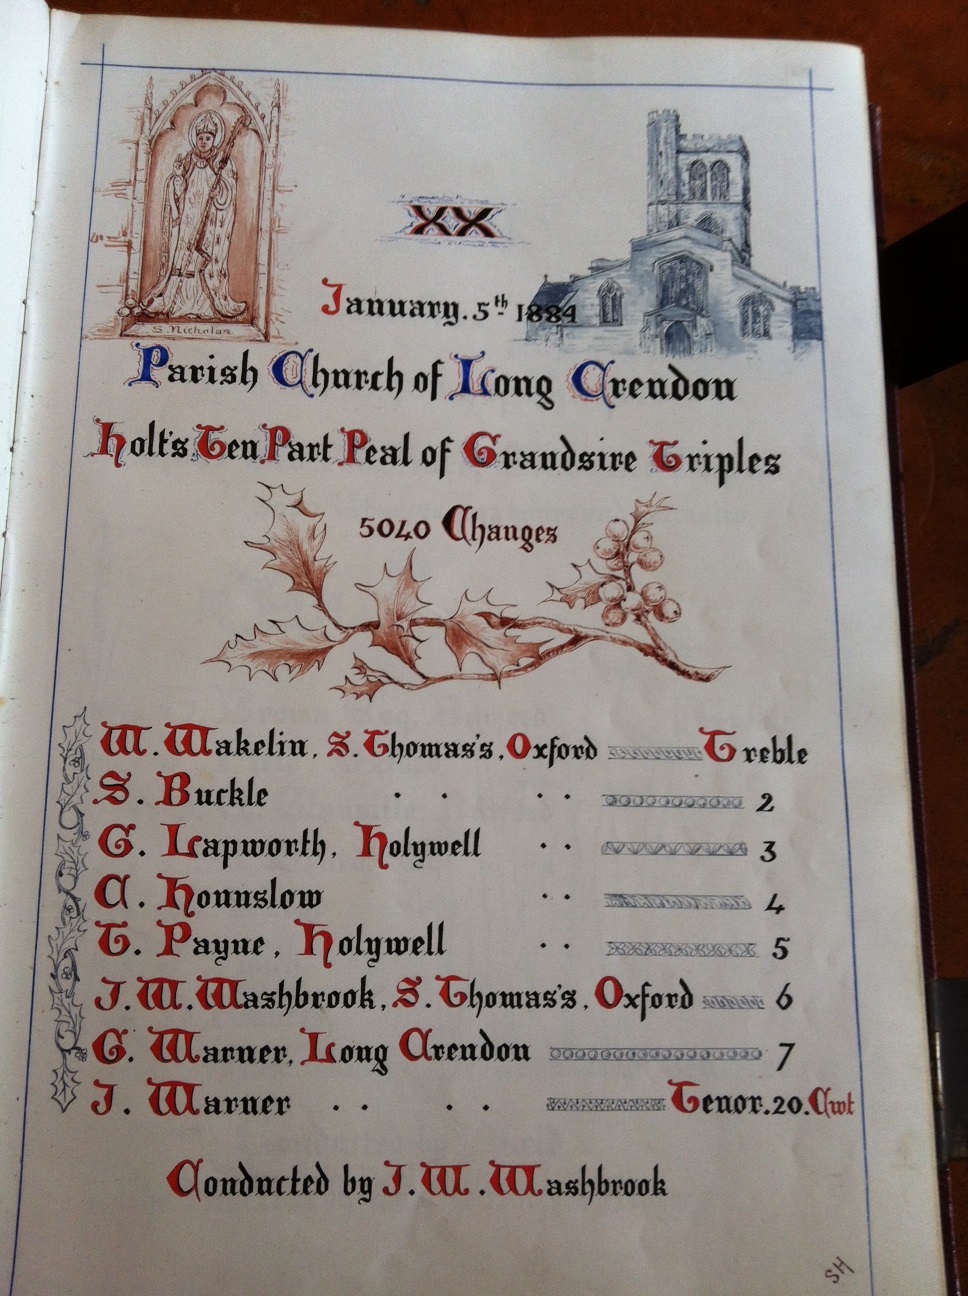 S. Nicholas.
XX
January. 5th 1884
Parish Church of Long Crendon
Holt's Ten Part Peal of Grandsire Triples
5040 Changes
W. Wakelin, S. Thomas's, Oxford Treble
S. Buckle . . . . 2
G. Lapworth, Holywell . . 3
A. Hounslow . . 4
T. Payne, Holywell . . 5
J. W. Washbrook, S. Thomas's, Oxford 6
G. Warner, Long Crendon 7
J. Warner . . . . Tenor. 20. Cwt
Conducted by J. W. Washbrook
SH